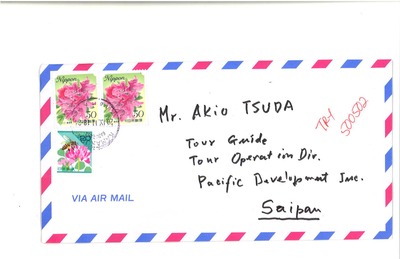 Nippon
Nippon
50
50
Mr. Akio TSUDA
TR-1
500502
Tour Guide
Tour Operation Dir.
Pacific Development Inc.
Saipan
VIA AIR MAIL